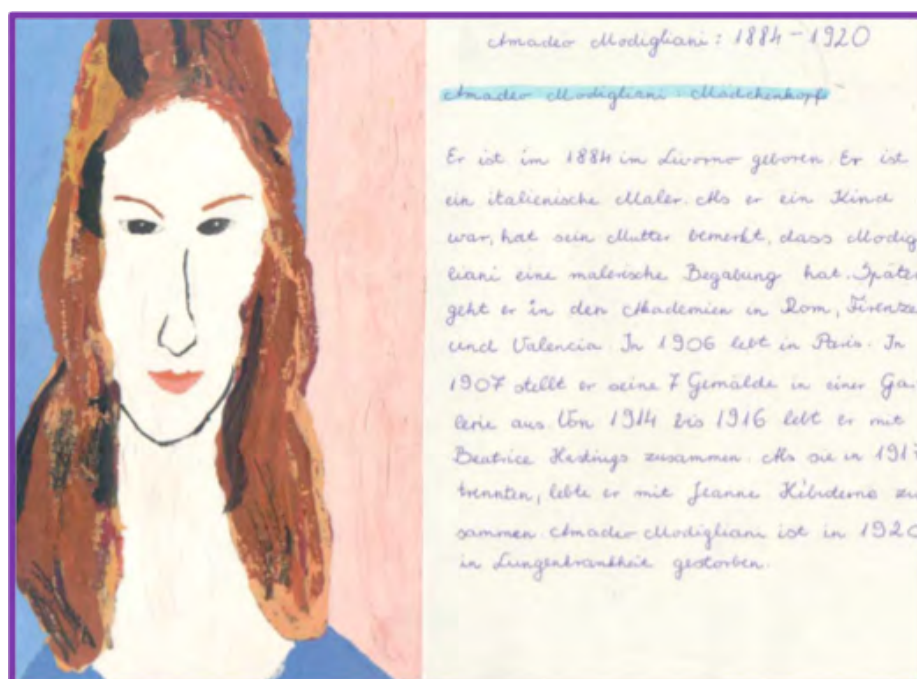 Amadeo Modigliani: 1884-1920
Amadeo Modigliani: Mädchenkopf
Er ist im 1884 im Livorno geboren. Er ist
ein italienische Maler. Als er ein Kind
war, hat sein Mutter bemerkt, dass Modig
liani eine malerische Begabung hat. Später
geht er in den Akademien in Rom, Firenze
und Valencia. In 1906 lebt in Paris. In
1907 stellt er seine 7 Gemälde in einer Ga
lerie aus. Von 1914 bis 1916 lebt er mit
Beatrice Hastings zusammen. Als sie in 191
trennten, lebte er mit Jeanne zu
sammen. Amadeo Modigliani ist in 1920
in Lungenkrankheit gestorben.